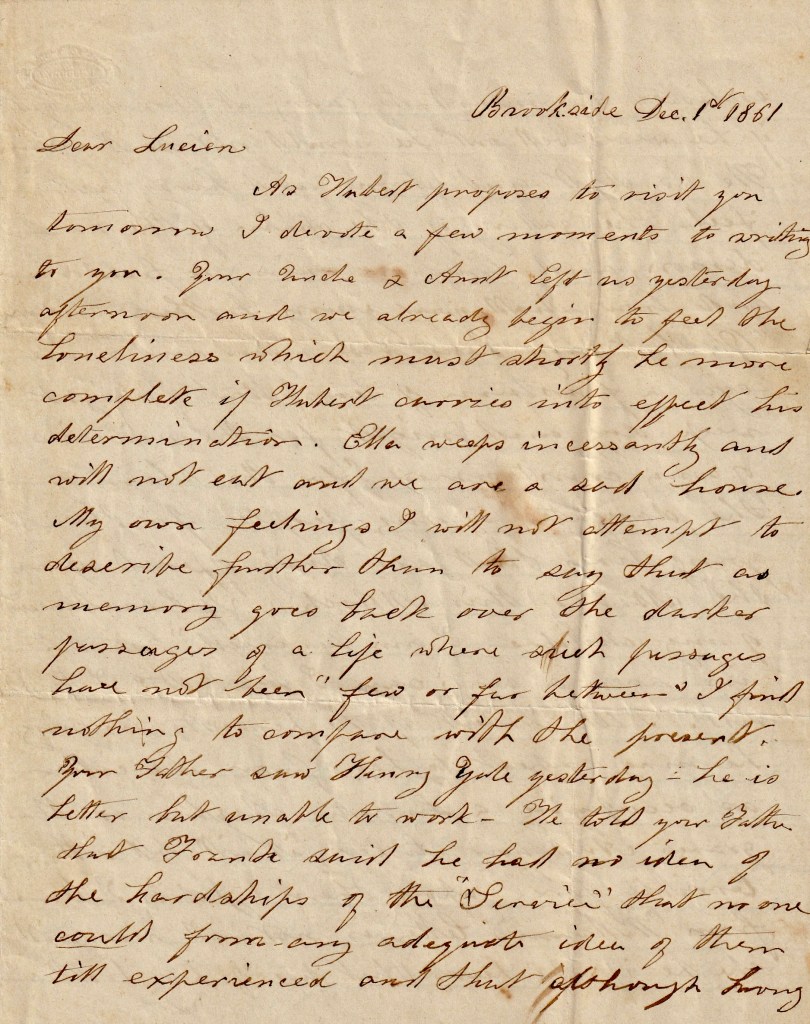 Brookside Dec. 1st 1861
Dear Lucien
As Hubert proposes to visit you
tomorrow I devote a few moments to writing
to you. Your Uncle & Aunt left us yesterday
afternoon and we already begin to feel the
loneliness which must shortly be more
complete if Hubert carries into effect his
determination. Ella weeps incessantly and
will not eat and we are a sad house.
My own feelings I will not attempt to
describe further than to say that as
memory goes back over the darker
passages of a life where such passages
have not been "few or far between" I find
nothing to compare with the present.
Your Father saw Henry Yale yesterday - he is
better but unable to work - He told your Father
that Frank said he had no idea of
the hardships of the "Service" that no one
could from any adequate idea of them
till experienced and that although